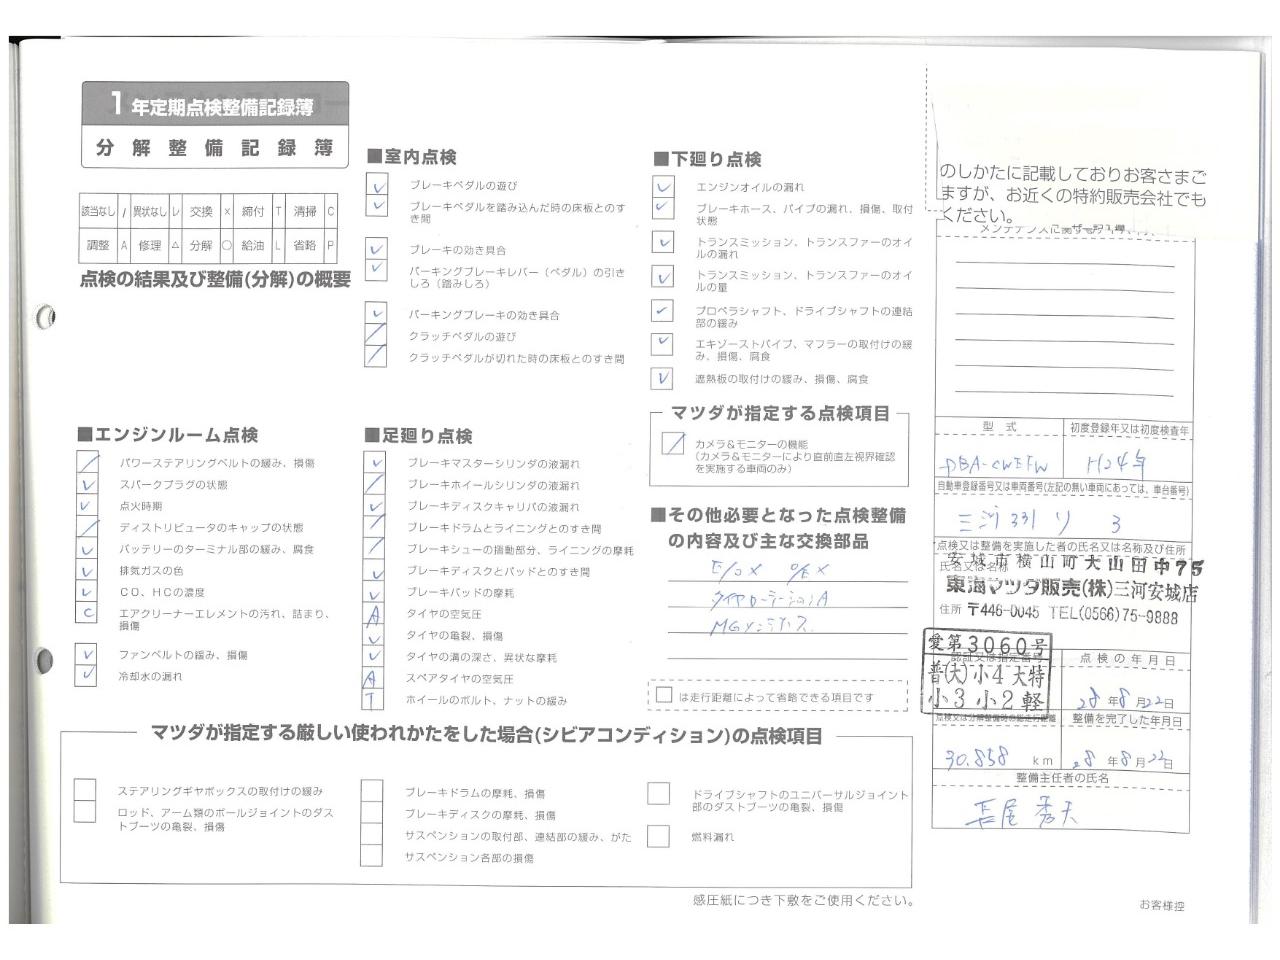 1年定期点検整備記録簿
分解整備記録簿
該当なし / 異状なし レ 交換 × 締付 T 清掃 C
調整 A 修理 △ 分解 ○ 給油 L 省略 P
点検の結果及び整備(分解)の概要
■エンジンルーム点検
パワーステアリングベルトの緩み、損傷
スパークプラグの状態
点火時期
ディストリビュータのキャップの状態
バッテリーのターミナル部の緩み、腐食
排気ガスの色
CO、HCの濃度
C エアクリーナーエレメントの汚れ、詰まり、
損傷
ファンベルトの緩み、損傷
冷却水の漏れ
■室内点検
ブレーキペダルの遊び
ブレーキペダルを踏み込んだ時の床板とのす
き間
ブレーキの効き具合
パーキングブレーキレバー(ペダル)の引き
しろ(踏みしろ)
パーキングブレーキの効き具合
クラッチペダルの遊び
クラッチペダルが切れた時の床板とのすき間
■足廻り点検
ブレーキマスターシリンダの液漏れ
ブレーキホイールシリンダの液漏れ
ブレーキディスクキャリパの液漏れ
ブレーキドラムとライニングとのすき間
ブレーキシューの摺動部分、ライニングの摩耗
ブレーキディスクとパッドとのすき間
ブレーキパッドの摩耗
A タイヤの空気圧
タイヤの亀裂、損傷
タイヤの溝の深さ、異状な摩耗
A スペアタイヤの空気圧
T ホイールのボルト、ナットの緩み
■下廻り点検
エンジンオイルの漏れ
ブレーキホース、パイプの漏れ、損傷、取付
状態
トランスミッション、トランスファーのオイ
ルの漏れ
トランスミッション、トランスファーのオイ
ルの量
プロペラシャフト、ドライブシャフトの連結
部の緩み
エキゾーストパイプ、マフラーの取付けの緩
み、損傷、腐食
遮熱板の取付けの緩み、損傷、腐食
マツダが指定する点検項目
カメラ&モニターの機能
(カメラ&モニターにより直前直左視界確認
を実施する車両のみ)
■その他必要となった点検整備
の内容及び主な交換部品
E/O X O/E X
タイヤローテーションA
は走行距離によって省略できる項目です
マツダが指定する厳しい使われかたをした場合(シビアコンディション)の点検項目
ステアリングギヤボックスの取付けの緩み
ロッド、アーム類のボールジョイントのダス
トブーツの亀裂、損傷
ブレーキドラムの摩耗、損傷
ブレーキディスクの摩耗、損傷
サスペンションの取付部、連結部の緩み、がた
サスペンション各部の損傷
ドライブシャフトのユニバーサルジョイント
部のダストブーツの亀裂、損傷
燃料漏れ
感圧紙につき下敷をご使用ください。
のしかたに記載しておりお客さまご
ますが、お近くの特約販売会社でも
ください。
型式 初度登録年又は初度検査年
DBA-CWEFW H24年
自動車登録番号又は車両番号(左記の無い車両にあっては、車台番号)
三河 331 り 3
点検又は整備を実施した者の氏名又は名称及び住所
氏名又は名称
安城市横山町大山田中75
東海マツダ販売(株)三河安城店
住所 〒446-0045 TEL(0566)75-9888
愛第3060号
認証又は指定番号 点検の年月日
普(大)小4大特
小3小2軽
28年8月22日
点検又は分解整備時の総走行距離 整備を完了した年月日
30.858 km 28年8月22日
整備主任者の氏名
長尾 秀夫
お客様控